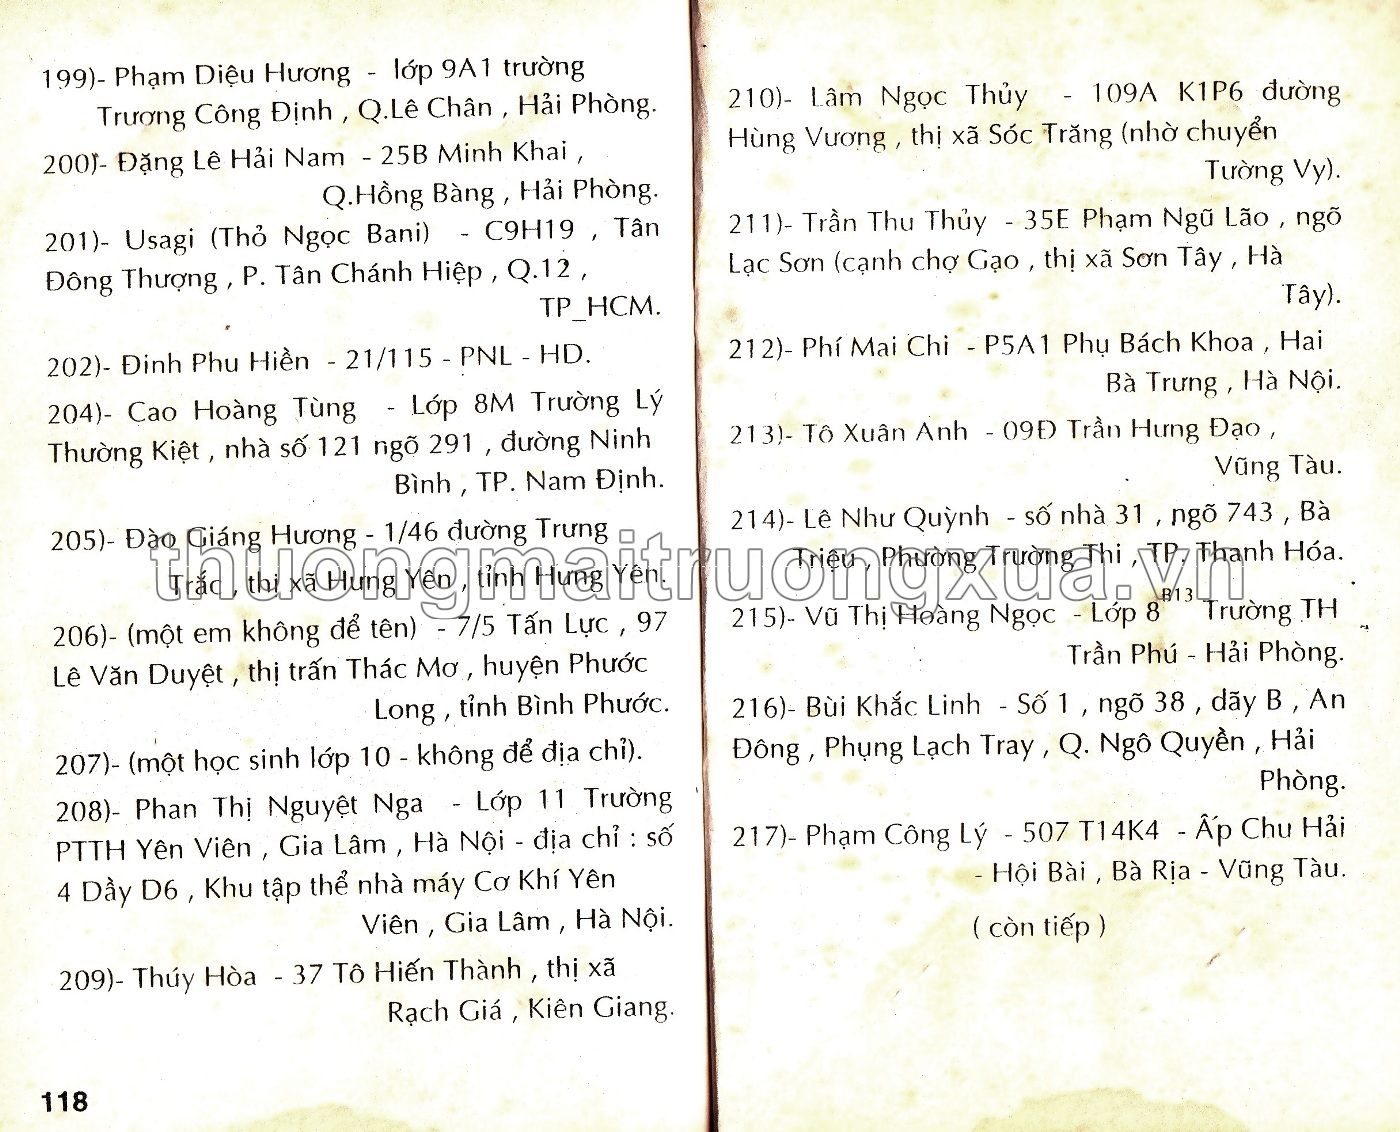 199)- Phạm Diệu Hương - lớp 9A1 trường
Trương Công Định , Q.Lê Chân , Hải Phòng.
200)- Đặng Lê Hải Nam - 25B Minh Khai ,
Q.Hồng Bàng , Hải Phòng.
201)- Usagi (Thỏ Ngọc Bani) - C9H19 , Tân
Đông Thượng , P. Tân Chánh Hiệp , Q.12 ,
TP_HCM.
202)- Đinh Phu Hiền - 21/115 - PNL - HD.
204)- Cao Hoàng Tùng - Lớp 8M Trường Lý
Thường Kiệt , nhà số 121 ngõ 291 , đường Ninh
Bình , TP. Nam Định.
205)- Đào Giáng Hương - 1/46 đường Trưng
Trắc , thị xã Hưng Yên , tỉnh Hưng Yên.
206)- (một em không để tên) - 7/5 Tấn Lực , 97
Lê Văn Duyệt , thị trấn Thác Mơ , huyện Phước
Long , tỉnh Bình Phước.
207)- (một học sinh lớp 10 - không để địa chỉ).
208)- Phan Thị Nguyệt Nga - Lớp 11 Trường
PTTH Yên Viên , Gia Lâm , Hà Nội - địa chỉ : số
4 Dầy D6 , Khu tập thể nhà máy Cơ Khí Yên
Viên , Gia Lâm , Hà Nội.
209)- Thúy Hòa - 37 Tô Hiến Thành , thị xã
Rạch Giá , Kiên Giang.
118
210)- Lâm Ngọc Thủy - 109A K1P6 đường
Hùng Vương , thị xã Sóc Trăng (nhờ chuyển
Tường Vy).
211)- Trần Thu Thủy - 35E Phạm Ngũ Lão , ngõ
Lạc Sơn (cạnh chợ Gạo , thị xã Sơn Tây , Hà
Tây).
212)- Phí Mai Chi - P5A1 Phụ Bách Khoa , Hai
Bà Trưng , Hà Nội.
213)- Tô Xuân Anh - 09Đ Trần Hưng Đạo ,
Vũng Tàu.
214)- Lê Như Quỳnh - số nhà 31 , ngõ 743 , Bà
Triệu , Phường Trường Thi , TP. Thanh Hóa.
215)- Vũ Thị Hoàng Ngọc - Lớp 8B13 Trường TH
Trần Phú - Hải Phòng.
216)- Bùi Khắc Linh - Số 1 , ngõ 38 , dãy B , An
Đông , Phụng Lạch Tray , Q. Ngô Quyền , Hải
Phòng.
217)- Phạm Công Lý - 507 T14K4 - Ấp Chu Hải
- Hội Bài , Bà Rịa - Vũng Tàu.
( còn tiếp )
thuongmaitruongxua.vn